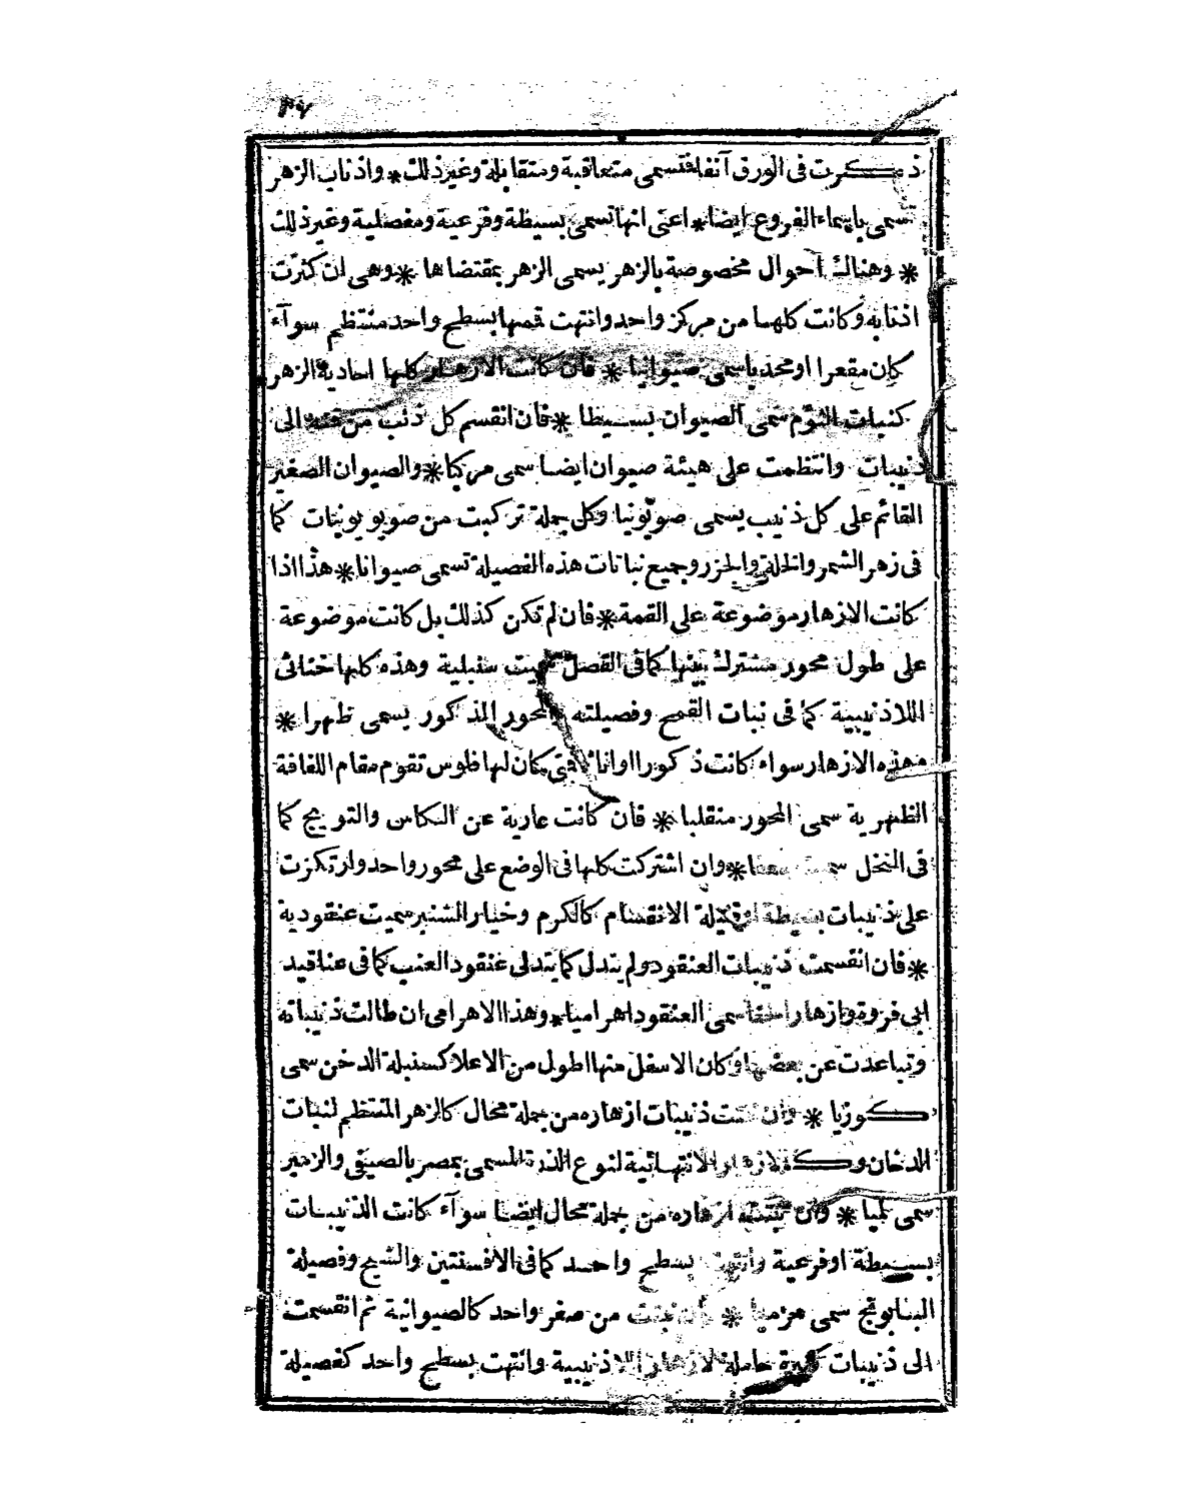 ٣٧
ذكرت فى الورق آنفا فتسمى متعاقبة ومتقابلة وغير ذلك * واذناب الزهر
تسمى باسماء الفروع ايضا * اعنى انها تسمى بسيطة وفرعية ومفصلية وغير ذلك
* وهناك احوال مخصوصة بالزهر يسمى الزهر بمقتضاها * وهى ان كثرت
اذنابه وكانت كلها من مركز واحد وانتهت قمها بسطح واحد منتظم سوآء
كان مقعرا او محدبا سمى صيوانيا * فان كانت الازهار كلها احادية الزهر
كنبات الثوم سمى الصيوان بسيطا * فان انقسم كل ذنب من قمته الى
ذنيبات وانتظمت على هيئة صيوان ايضا سمى مركبا * والصيوان الصغير
القائم على كل ذنيب يسمى صويّونيا وكل جملة تركبت من صويونيات كما
فى زهر الشمر والخلة والجزر وجميع نباتات هذه الفصيلة تسمى صيوانا * هذا اذا
كانت الازهار موضوعة على القمة * فان لم تكن كذلك بل كانت موضوعة
على طول محور مشترك بينها كما فى الفصل سميت سنبلية وهذه كلها خناثى
اللاذنيبية كما فى نبات القمح وفصيلته والمحور المذكور يسمى ظهرا *
وهذه الازهار سواء كانت ذكورا او اناثا فتى كان لها فلوس تقوم مقام اللفافة
الظهرية سمى المحور منقلبا * فان كانت عارية عن الكاس والتويج كما
فى النخل * وان اشتركت كلها فى الوضع على محور واحد وارتكزت
على ذنيبات بسيطة او قليلة الانقسام كالكرم وخيار الشنبر سميت عنقودية
* فان انقسمت ذنيبات العنقود ولم يتدل كما يتدلى عنقود العنب كما فى عناقيد
ابى فروة وازهار سمى العنقود اهراميا * وهذا الاهرامى ان طالت ذنيباته
وتباعدت عن بعضها وكان الاسفل منها اطول من الاعلا كسنبلة الدخن سمى
كوزيا * وان نبتت ذنيبات ازهاره من جملة محال كالزهر المنتظم لنبات
الدخان وكالازهار الانتهائية لنوع الذرة المسمى بمصر بالصيفى والزمير
سمى لميا * وان نبتت ازهاره من جملة محال ايضا سوآء كانت الذنيبات
بسيطة او فرعية وانتهت بسطح واحد كما فى الافسنتين والشيح وفصيلة
البنابونج سمى هزميا * نبتت من صفر واحد كالصيوانية ثم انقسمت
الى ذنيبات كثيرة حاملة لازهار اللاذنيبية وانتهت بسطح واحد كفصيلة